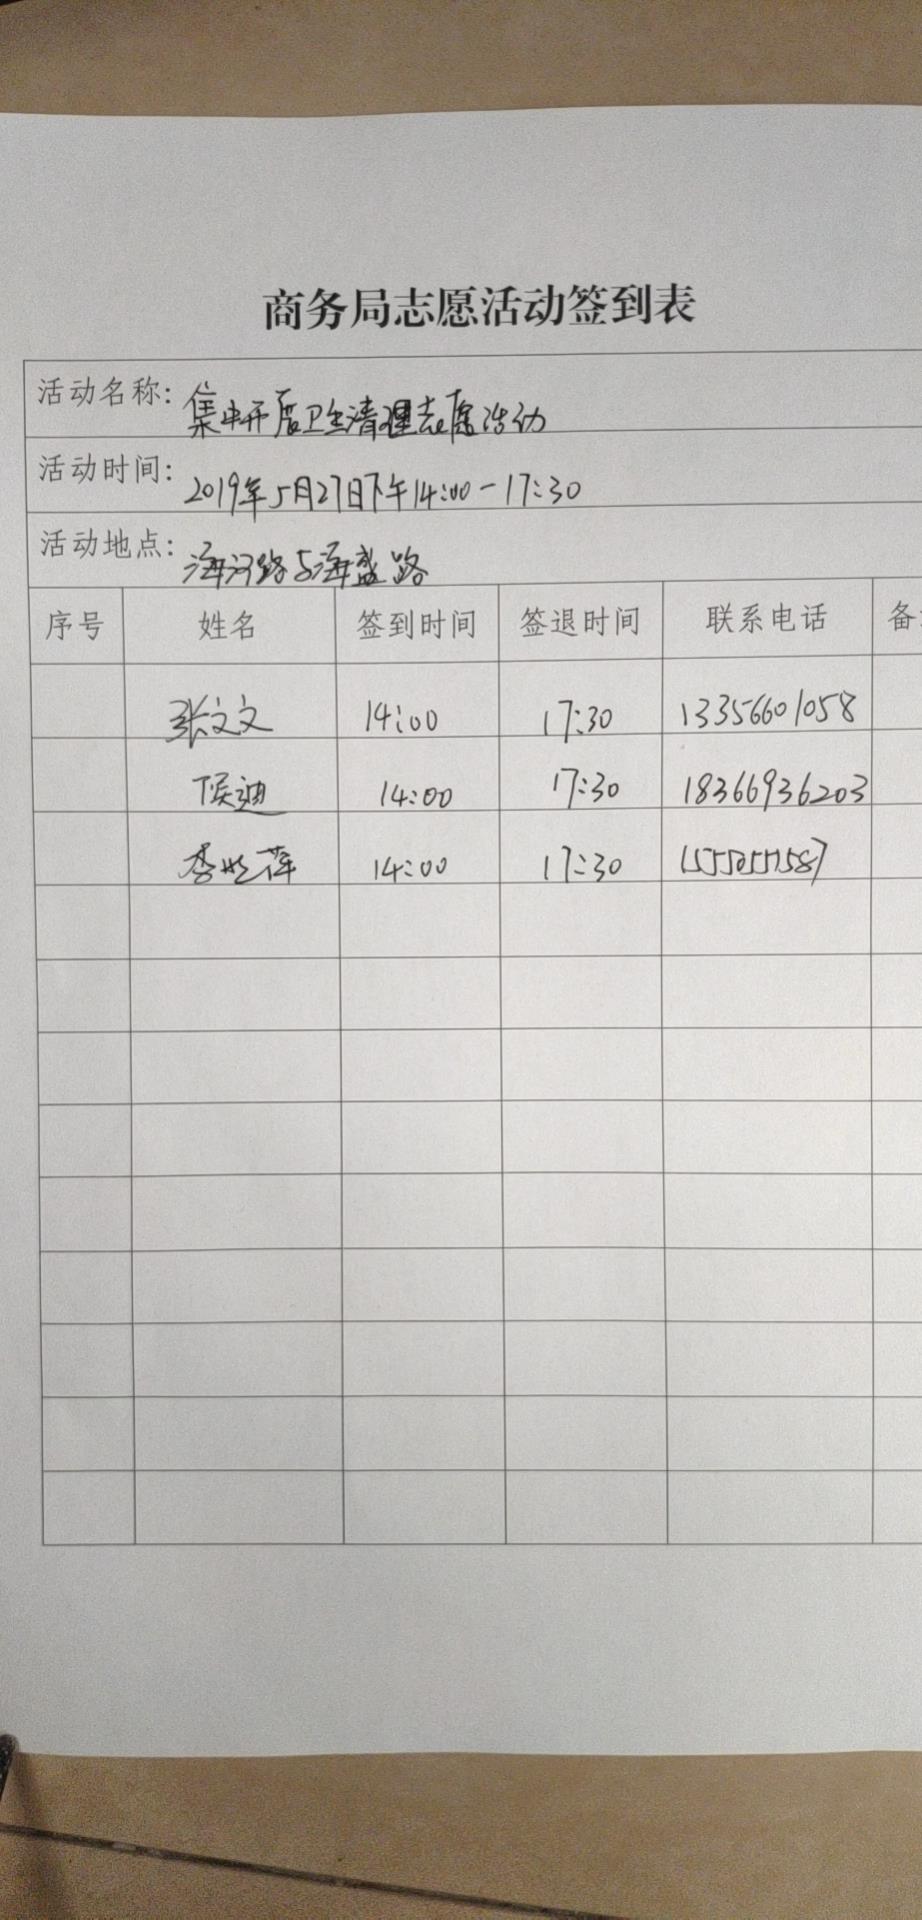 商务局志愿活动签到表
活动名称: 集中开展卫生清理志愿活动
活动时间: 2019年5月27日下午14:00-17:30
活动地点: 海河路与海盛路
序号 姓名 签到时间 签退时间 联系电话 备
张文文 14:00 17:30 13356601058
侯迪 14:00 17:30 18366936203
李 萍 14:00 17:30